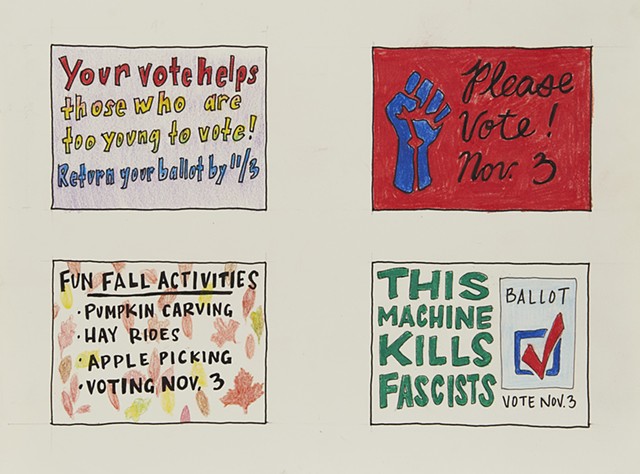 Your vote helps
those who are
too young to vote!
Return your ballot by 11/3
Please
Vote!
Nov. 3
FUN FALL ACTIVITIES
· PUMPKIN CARVING
· HAY RIDES
· APPLE PICKING
· VOTING NOV. 3
THIS
MACHINE
KILLS
FASCISTS
BALLOT
VOTE NOV. 3